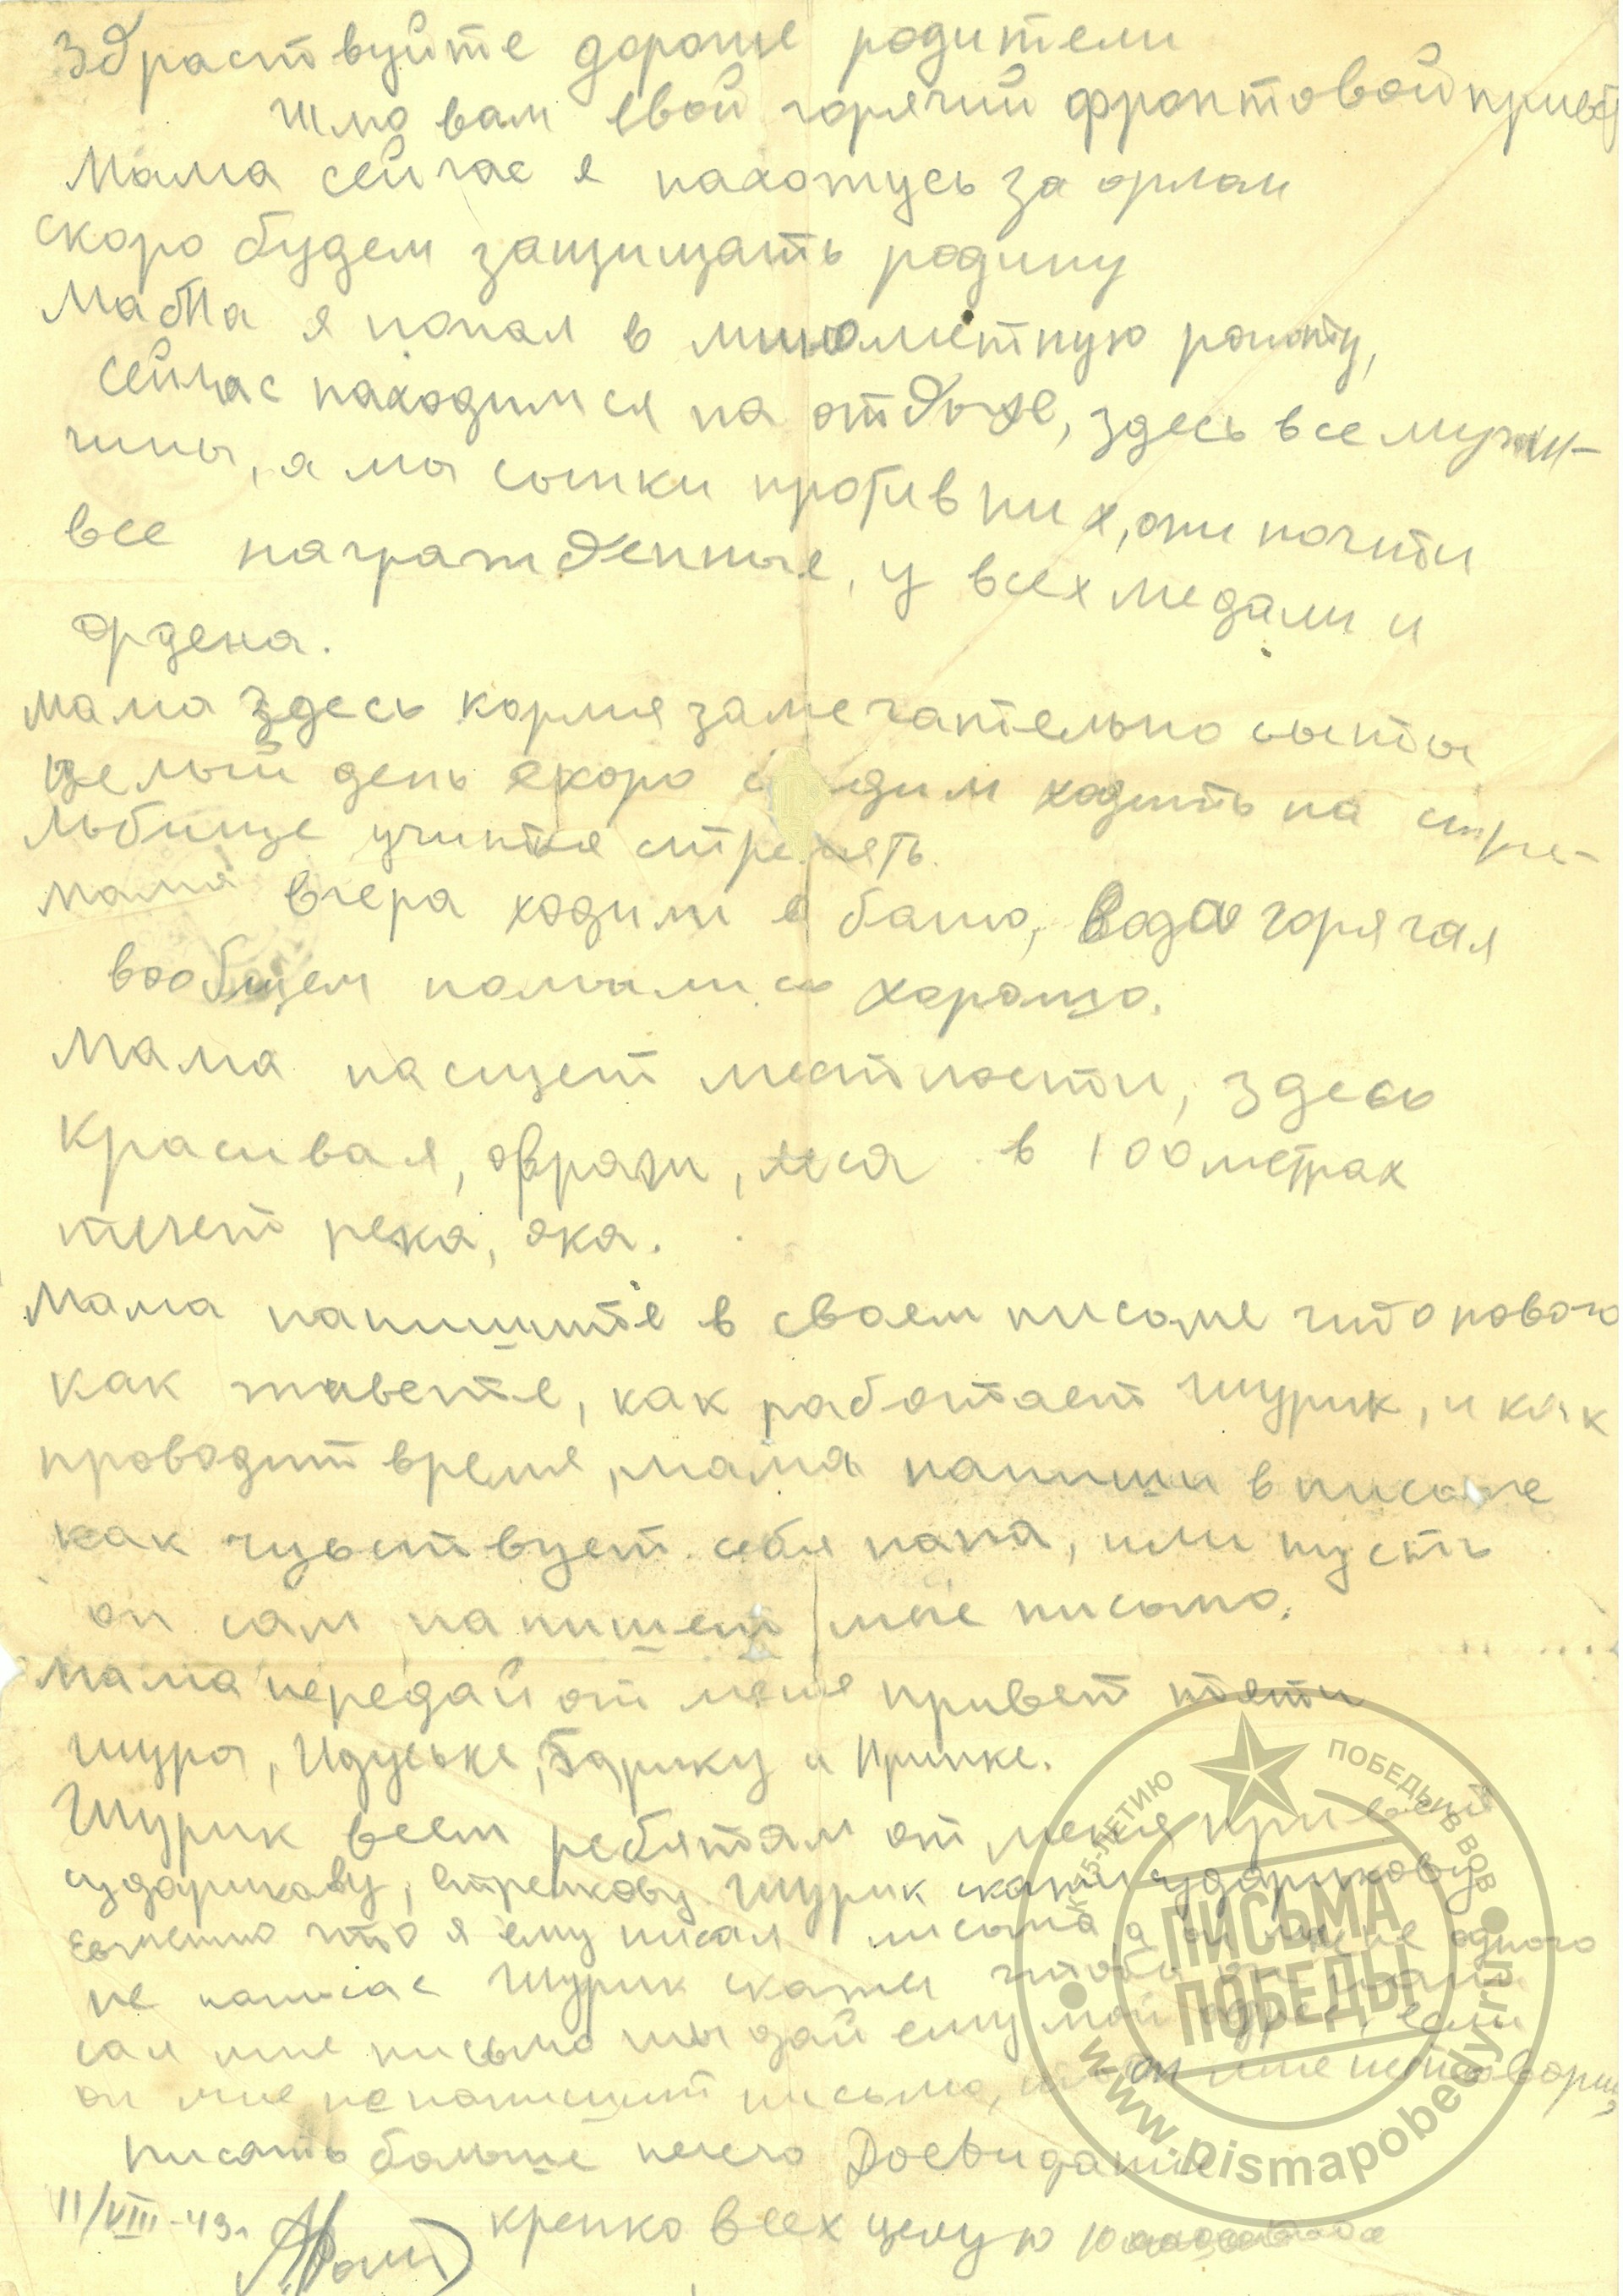 Здраствуйте дорогие родители
Шлю вам свой горячий фронтовой привет
Мама сейчас я нахотусь за орлом
скоро будем защищать родину
Мама я попал в минометную роту,
сейчас находимся на отдыхе, здесь все мужи-
чины, а мы сынки против них, они почти
все награжденные, у всех медали и
ордена.
мама здесь кормя замечательно сыты
целый день скоро будим ходить на стре-
льбище учится стрелять.
мама вчера ходили в баню, вода горячая
вообщем помылись хорошо.
Мама насщет местности, здесь
Красивая, овраги, леса в 100 метрах
течет река, ока.
Мама напишите в своем письме что нового
как живете, как работает шурик, и как
проводит время, мама напиши в письме
как чувствует себя папа, или пусть
он сам напишет мне письмо.
мама передай от меня привет тети
шура, Идуське, Борику и Иринке.
Шурик всем ребятам от меня привет
сударикаву, Стрелкову Шурик скажи сударикову
Евгению что я ему писал письма а он мне не одного
не написас Шурик скажи чтобы он напи
сал мне письмо ты дай ему мой адрес, если
он мне не напишит письмо, то он мне нетоварищ,
писать больше нечего Досвидание
крепко всех целую
11/VIII-43г.
К 75-ЛЕТИЮ ПОБЕДЫ В ВОВ
ПИСЬМА
ПОБЕДЫ
www.pismapobedy.ru